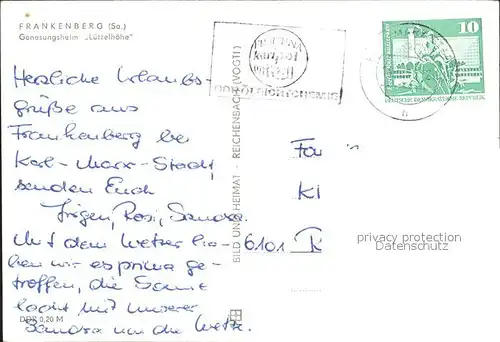 FRANKENBERG (Sa.)
Genesungsheim „Lützelhöhe"
Herzliche Urlaubs-
grüße aus
Frankenberg bei
Karl-Marx-Stadt
senden Euch
Jürgen, Rosi, Sandra.
Mit dem Wetter ha-
ben wir es prima ge-
troffen, die Sonne
lacht mit unserer
Sandra um die Wette.
DDR 0,20 M
BILD UND HEIMAT · REICHENBACH (VOGTL)
10
DEUTSCHE DEMOKRATISCHE REPUBLIK
Fa
Kl
6101 R
privacy protection
Datenschutz